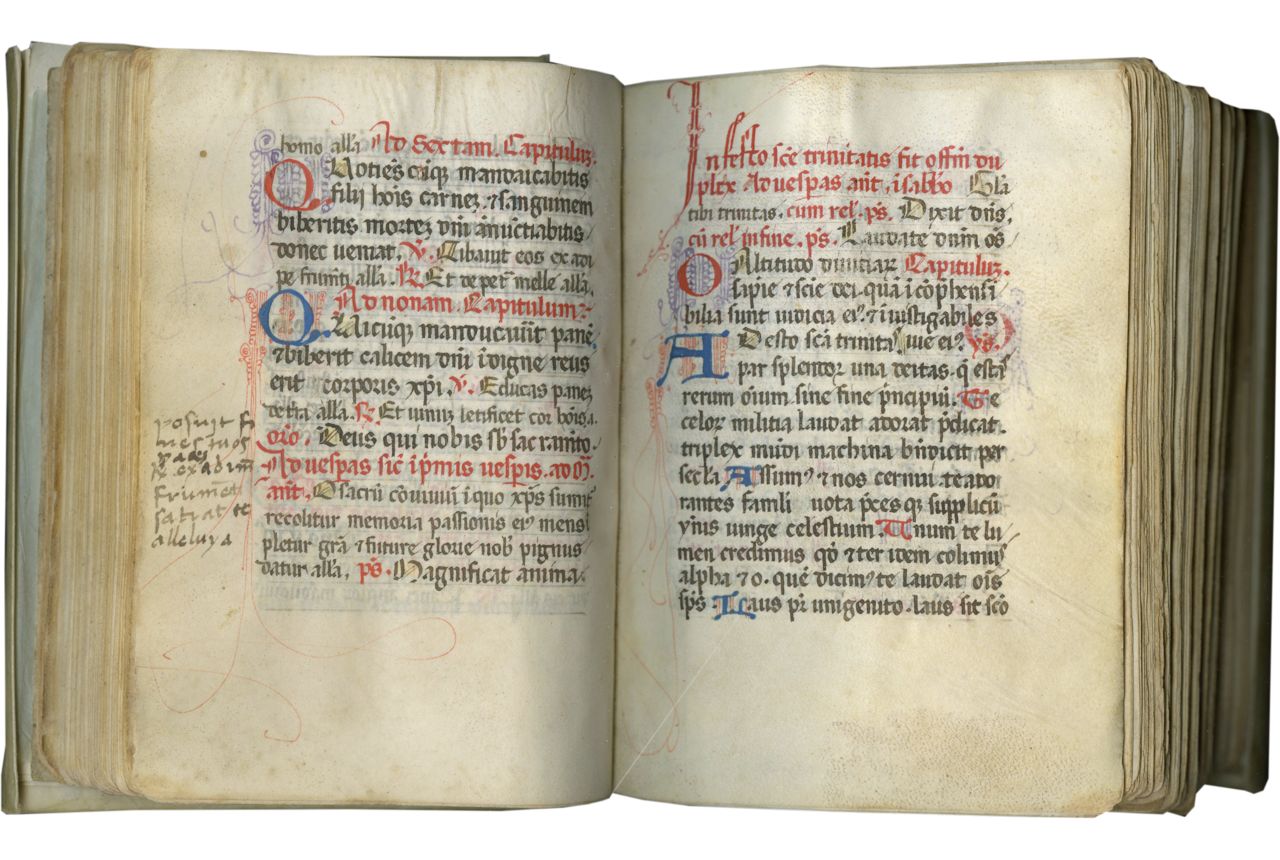 homo all'a Ad Sextam. Capitulum.
Quotiescūque manducabitis
filij hoīs carnez. ⁊ sanguinem
biberitis mortez dn̄i anūctiabitis
donec ueniat. V. Cibauit eos ex adi
pe frumēti all'a. R. Et de petra melle all'a.
Ad nonam. Capitulum.
Quicūq manducauit panē
⁊ biberit calicem dn̄i īdigne reus
erit corporis xp̄i. V. Educas panez
de tr̄a all'a. R. Et uinuz letificet cor hoīs a.
oro. Deus qui nobis sb̄ sacramto.
Ad uesp̄as sic̄ ip̄mis uesp̄is. ad M̄.
ant̄. O sacrū cōuiuiū ī quo xp̄s sumit̄
recolitur memoria passionis ei⁹ mens
pletur grā ⁊ future glorie nob̄ pignus
datur all'a. ps̄. Magnificat anima.
posuit fi
nes tuos
paces
R. ex adipe
frumēti
satiat te
alleluya
In festo sc̄e trinitatis fit offm̄ du
plex Ad uesp̄as ant̄. ī sabb̄o Gl̄a
tibi trinitas. cum rel'. ps̄. Dixit dn̄s.
cū rel' in fine. ps̄. Laudate dnm̄ oēs
O Altitudo diuiciar Capituluz.
sapīe ⁊ scīe dei. quā īcōp̄hensi
bilia sunt iudicia ei⁹. ⁊ īuestigabiles
uie ei⁹. ys̄.
Adesto scā trinitas
par splendor una deitas. q̄ extas
rerum oīum sine fine p̄ncipiū. Te
celor militia laudat adorat p̄dicat.
triplex mūdi machina bn̄dicit per
secl'a. Assum⁹ ⁊ nos cernui te ado
rantes famli uota p̄ces q̄ supplicū
ymīs iunge celestium. Unum te lu
men credimus qd̄ ⁊ ter idem colimus
alpha ⁊ o. quē dicim⁹ te laudat oīs
sp̄s. Laus pr̄i unigenito. laus sit scō